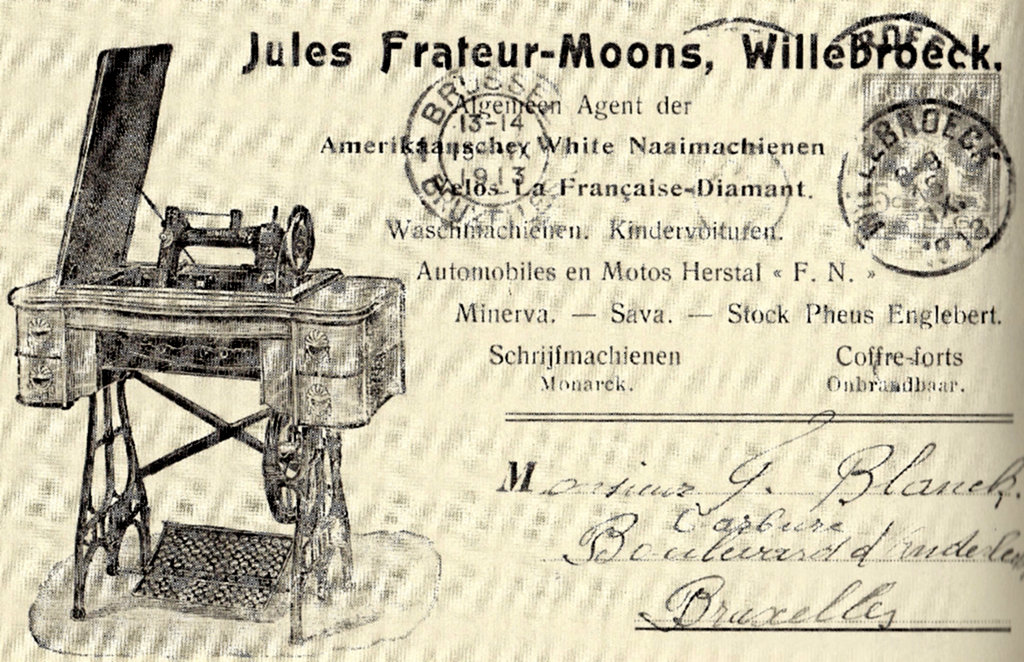 Jules Frateur-Moons, Willebroeck.
Algemeen Agent der
Amerikaansche White Naaimachienen
Velos La Française-Diamant.
Waschmachienen. Kindervoituren.
Automobiles en Motos Herstal « F. N. »
Minerva. — Sava. — Stock Pneus Englebert.
Schrijfmachienen Coffre-forts
Monarck. Onbrandbaar.
13-14
1913
WILLEBROECK
Monsieur G. Blanck.
Carbure
Boulevard
Bruxelles